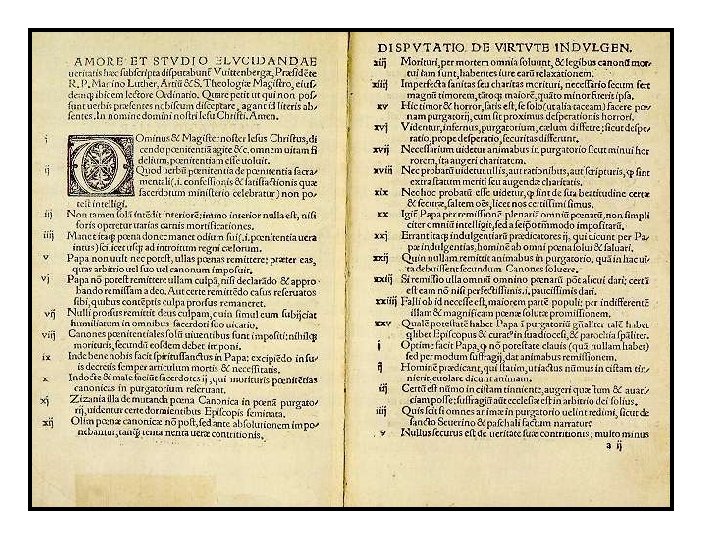 AMORE ET STVDIO ELVCIDANDAE
ueritatis hæc subscripta disputabunť Vuittenbergæ, Præsidẽte
R. P. Martino Luther, Artiũ & S. Theologiæ Magistro, eius-
demq̃ ibidem lectore Ordinario. Quare petit ut qui non pos-
sunt uerbis præsentes nobiscum disceptare, agant id literis ab-
sentes. In nomine domini nostri Iesu Christi. Amen.
i DOminus & Magister noster Iesus Christus, di
cendo pœnitentiã agite &c. omnem uitam fi
delium, pœnitentiam esse uoluit.
ij Quod uerbũ pœnitentia de pœnitentia sacra
mentali(.i. confessionis & satisfactionis quæ
sacerdotum ministerio celebratur) non po-
test intelligi.
iij Non tamen solã intẽdit interiorẽ; immo interior nulla est, nisi
foris operetur uarias carnis mortificationes.
iiij Manet itaq̃ pœna donec manet odium sui(.i. pœnitentia uera
intus) scilicet usq̃ ad introitum regni cælorum.
v Papa non uult nec potest, ullas pœnas remittere; præter eas,
quas arbitrio uel suo uel canonum imposuit.
vj Papa nõ potest remittere ullam culpã, nisi declarãdo & appro-
bando remissam a deo. Aut certe remittẽdo casus reseruatos
sibi, quibus contẽptis culpa prorsus remaneret.
vij Nulli prorsus remittit deus culpam, quin simul eum subijciat
humiliatum in omnibus sacerdoti suo uicario.
viij Canones pœnitentiales solũ uiuentibus sunt impositi; nihilq̃
morituris, secundũ eosdem debet imponi.
ix Inde bene nobis facit spiritussanctus in Papa: excipiẽdo in su-
is decretis semper articulum mortis & necessitatis.
x Indocte & male faciũt sacerdotes ij, qui morituris pœnitẽtias
canonicas in purgatorium reseruant.
xj Zizania illa de mutanda pœna Canonica in pœnã purgato-
rij, uidentur certe dormientibus Episcopis seminata.
xij Olim pœnæ canonicæ nõ post, sed ante absolutionem impo-
nebantur, tanq̃ tentamenta ueræ contritionis.
DISPVTATIO DE VIRTVTE INDVLGEN.
xiij Morituri, per mortem omnia soluunt, & legibus canonũ mor-
tui iam sunt, habentes iure earũ relaxationem.
xiiij Imperfecta sanitas seu charitas morituri, necessario secum fert
magnũ timorem, tãtoq̃ maiorẽ, quãto minor fuerit ipsa.
xv Hic timor & horror, satis est, se solo(ut alia taceam) facere pœ-
nam purgatorij, cum sit proximus desperationis horrori.
xvj Videntur, infernus, purgatorium, cælum differre; sicut despe-
ratio, prope desperatio, securitas differunt.
xvij Necessarium uidetur animabus in purgatorio sicut minui hor-
rorem, ita augeri charitatem.
xviij Nec probatũ uidetur ullis, aut rationibus, aut scripturis, q̃ sint
extra statum meriti seu augendæ charitatis.
xix Nec hoc probatũ esse uidetur, q̃ sint de sua beatitudine certæ
& securæ, saltem oẽs, licet nos certissimi simus.
xx Igit̃ Papa per remissionẽ plenariã omniũ pœnarũ, non simpli
citer omniũ intelligit, sed a seipso tantũmodo impositarũ.
xxj Errant itaq̃ indulgentiarũ prædicatores ij, qui dicunt per Pa-
pæ indulgentias, hominẽ ab omni pœna solui & saluari.
xxij Quin nullam remittit animabus in purgatorio, quã in hac ui-
ta debuissent secundum Canones soluere.
xxiij Si remissio ulla omniũ omnino pœnarũ põt alicui dari; certũ
est eam nõ nisi perfectissimis, .i. paucissimis dari.
xxiiij Falli ob id necesse est, maiorem partẽ populi; per indifferentẽ
illam & magnificam pœnæ solutæ promissionem.
xxv Qualẽ potestatẽ habet Papa ĩ purgatoriũ gñaliter talẽ habet
q̃libet Episcopus & curatus in sua diocesi, & parochia spãliter.
i Optime facit Papa, q̃ nõ potestate clauis (quã nullam habet)
sed per modum suffragij, dat animabus remissionem.
ij Hominẽ prædicant, qui statim, ut iactus nũmus in cistam tin-
nierit euolare dicunt animam.
iij Certũ est nũmo in cistam tinniente, augeri quæstum & auari-
ciam posse: suffragiũ aũt ecclesiæ est in arbitrio dei solius.
iiij Quis scit si omnes animæ in purgatorio uelint redimi, sicut de
sancto Seuerino & paschali factum narratur
v Nullus securus est de ueritate suæ contritionis; multo minus
a ij